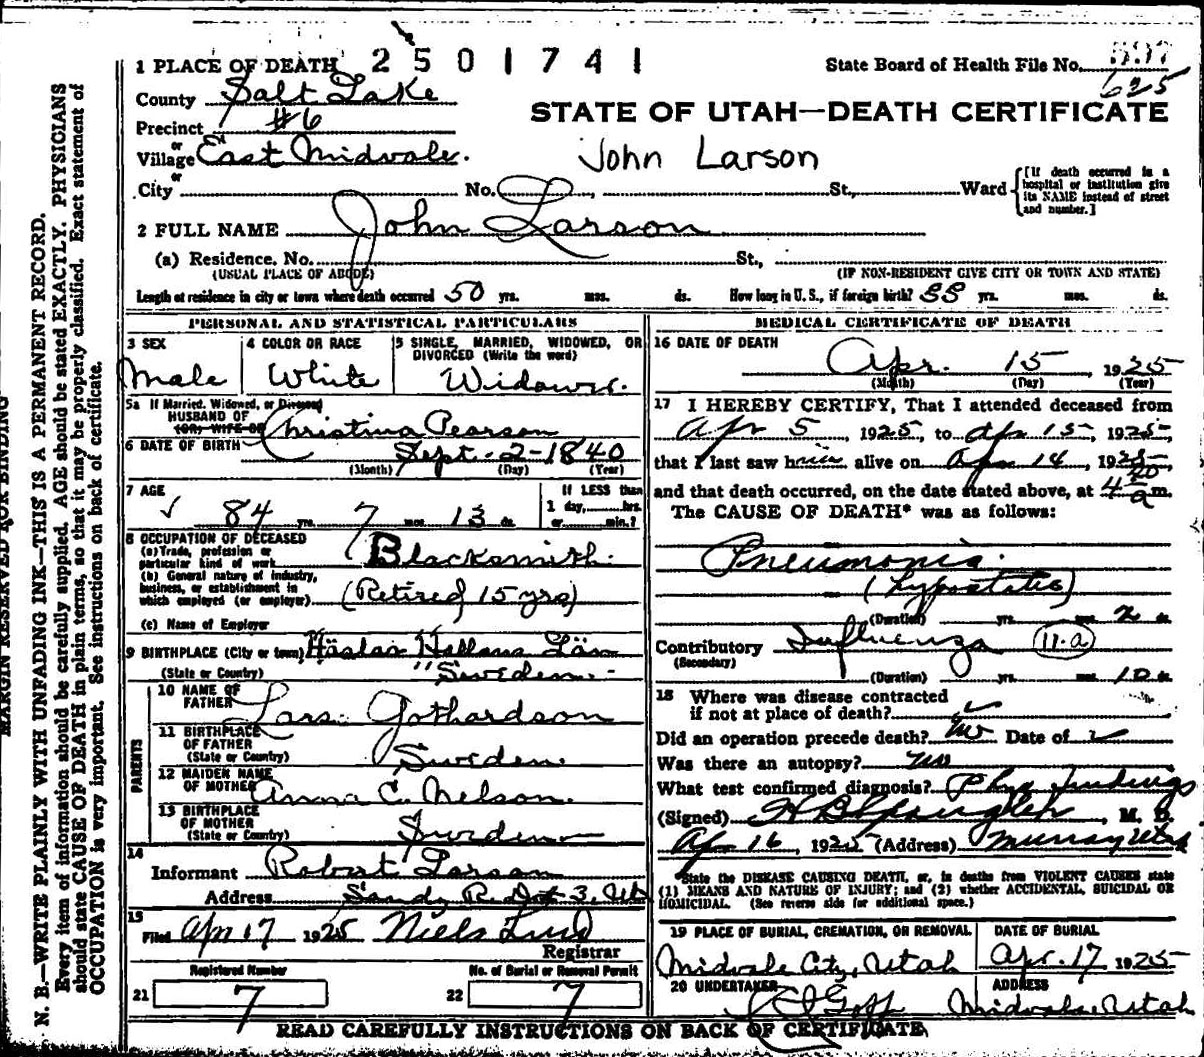 2501741
1 PLACE OF DEATH
State Board of Health File No. 597
625
County Salt Lake
STATE OF UTAH—DEATH CERTIFICATE
Precinct #6
or
Village East Midvale.
John Larson
or
City No. St., Ward
[If death occurred in a
hospital or institution give
its NAME instead of street
and number.]
2 FULL NAME John Larson
(a) Residence. No. St.,
(USUAL PLACE OF ABODE) (IF NON-RESIDENT GIVE CITY OR TOWN AND STATE)
Length of residence in city or town where death occurred 50 yrs. mos. ds. How long in U. S., if foreign birth? 55 yrs. mos. ds.
PERSONAL AND STATISTICAL PARTICULARS
3 SEX
Male
4 COLOR OR RACE
White
5 SINGLE, MARRIED, WIDOWED, OR
DIVORCED (Write the word)
Widower.
5a If Married, Widowed, or Divorced
HUSBAND OF
(OR) WIFE OF Christina Pearson
6 DATE OF BIRTH Sept. 2-1840
(Month) (Day) (Year)
7 AGE
84 yrs. 7 mos. 13 ds.
If LESS than
1 day, hrs.
or min.?
8 OCCUPATION OF DECEASED
(a) Trade, profession or
particular kind of work Blacksmith.
(b) General nature of industry,
business, or establishment in
which employed (or employer) (Retired 15 yrs)
(c) Name of Employer
9 BIRTHPLACE (City or town) Hallans Län
(State or Country) "Sweden.
PARENTS
10 NAME OF
FATHER Lars Gothardson
11 BIRTHPLACE
OF FATHER
(State or Country) Sweden.
12 MAIDEN NAME
OF MOTHER Anna C. Nelson.
13 BIRTHPLACE
OF MOTHER
(State or Country) Sweden
14
Informant Robert Larson
Address Sandy R.D. # 3, Ut
15
Filed Apr 17 1925 Niels Lind
Registrar
Registered Number
21 7
No. of Burial or Removal Permit
22 7
MEDICAL CERTIFICATE OF DEATH
16 DATE OF DEATH
Apr. 15, 1925
(Month) (Day) (Year)
17 I HEREBY CERTIFY, That I attended deceased from
Apr 5, 1925, to Apr 15, 1925,
that I last saw him alive on Apr 14, 1925
and that death occurred, on the date stated above, at 4 20 a m.
The CAUSE OF DEATH* was as follows:
Pneumonia.
(hypostatic)
(Duration) yrs. mos. 2 ds.
Contributory Influenza 11.a
(Secondary)
(Duration) yrs. mos. 10 ds.
18 Where was disease contracted
if not at place of death?
Did an operation precede death? no Date of
Was there an autopsy? no
What test confirmed diagnosis? Phy findings
(Signed) H B Spangler, M. D.
Apr 16, 1925 (Address) Murray Utah
State the DISEASE CAUSING DEATH, or, in deaths from VIOLENT CAUSES state
(1) MEANS AND NATURE OF INJURY; and (2) whether ACCIDENTAL, SUICIDAL OR
HOMICIDAL. (See reverse side for additional space.)
19 PLACE OF BURIAL, CREMATION, OR REMOVAL
Midvale City, Utah
DATE OF BURIAL
Apr. 17 1925
20 UNDERTAKER
Goff
ADDRESS
Midvale, Utah
READ CAREFULLY INSTRUCTIONS ON BACK OF CERTIFICATE
MARGIN RESERVED FOR BINDING
N. B.—WRITE PLAINLY WITH UNFADING INK—THIS IS A PERMANENT RECORD.
Every item of information should be carefully supplied. AGE should be stated EXACTLY. PHYSICIANS
should state CAUSE OF DEATH in plain terms, so that it may be properly classified. Exact statement of
OCCUPATION is very important. See instructions on back of certificate.